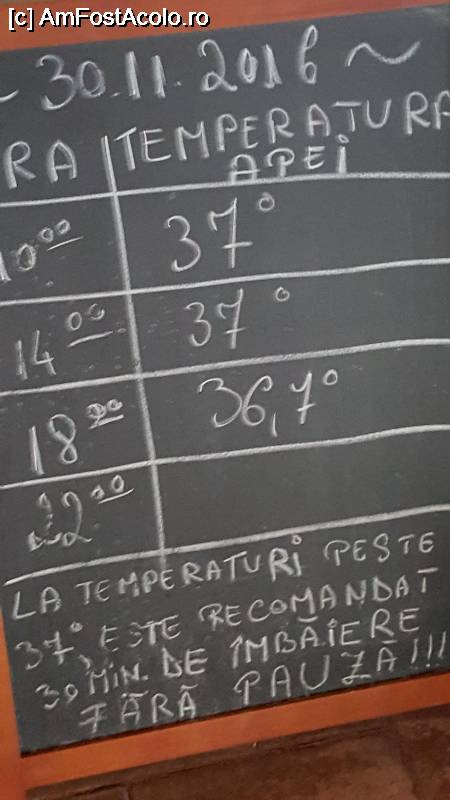 [c] AmFostAcolo.ro
~ 30.11.2016 ~
RA TEMPERATURA
APEI
10⁰⁰ 37°
14⁰⁰ 37°
18⁰⁰ 36,7°
22⁰⁰
LA TEMPERATURI PESTE
37°, ESTE RECOMANDAT
30 MIN. DE ÎMBĂIERE
FĂRĂ PAUZĂ!!!